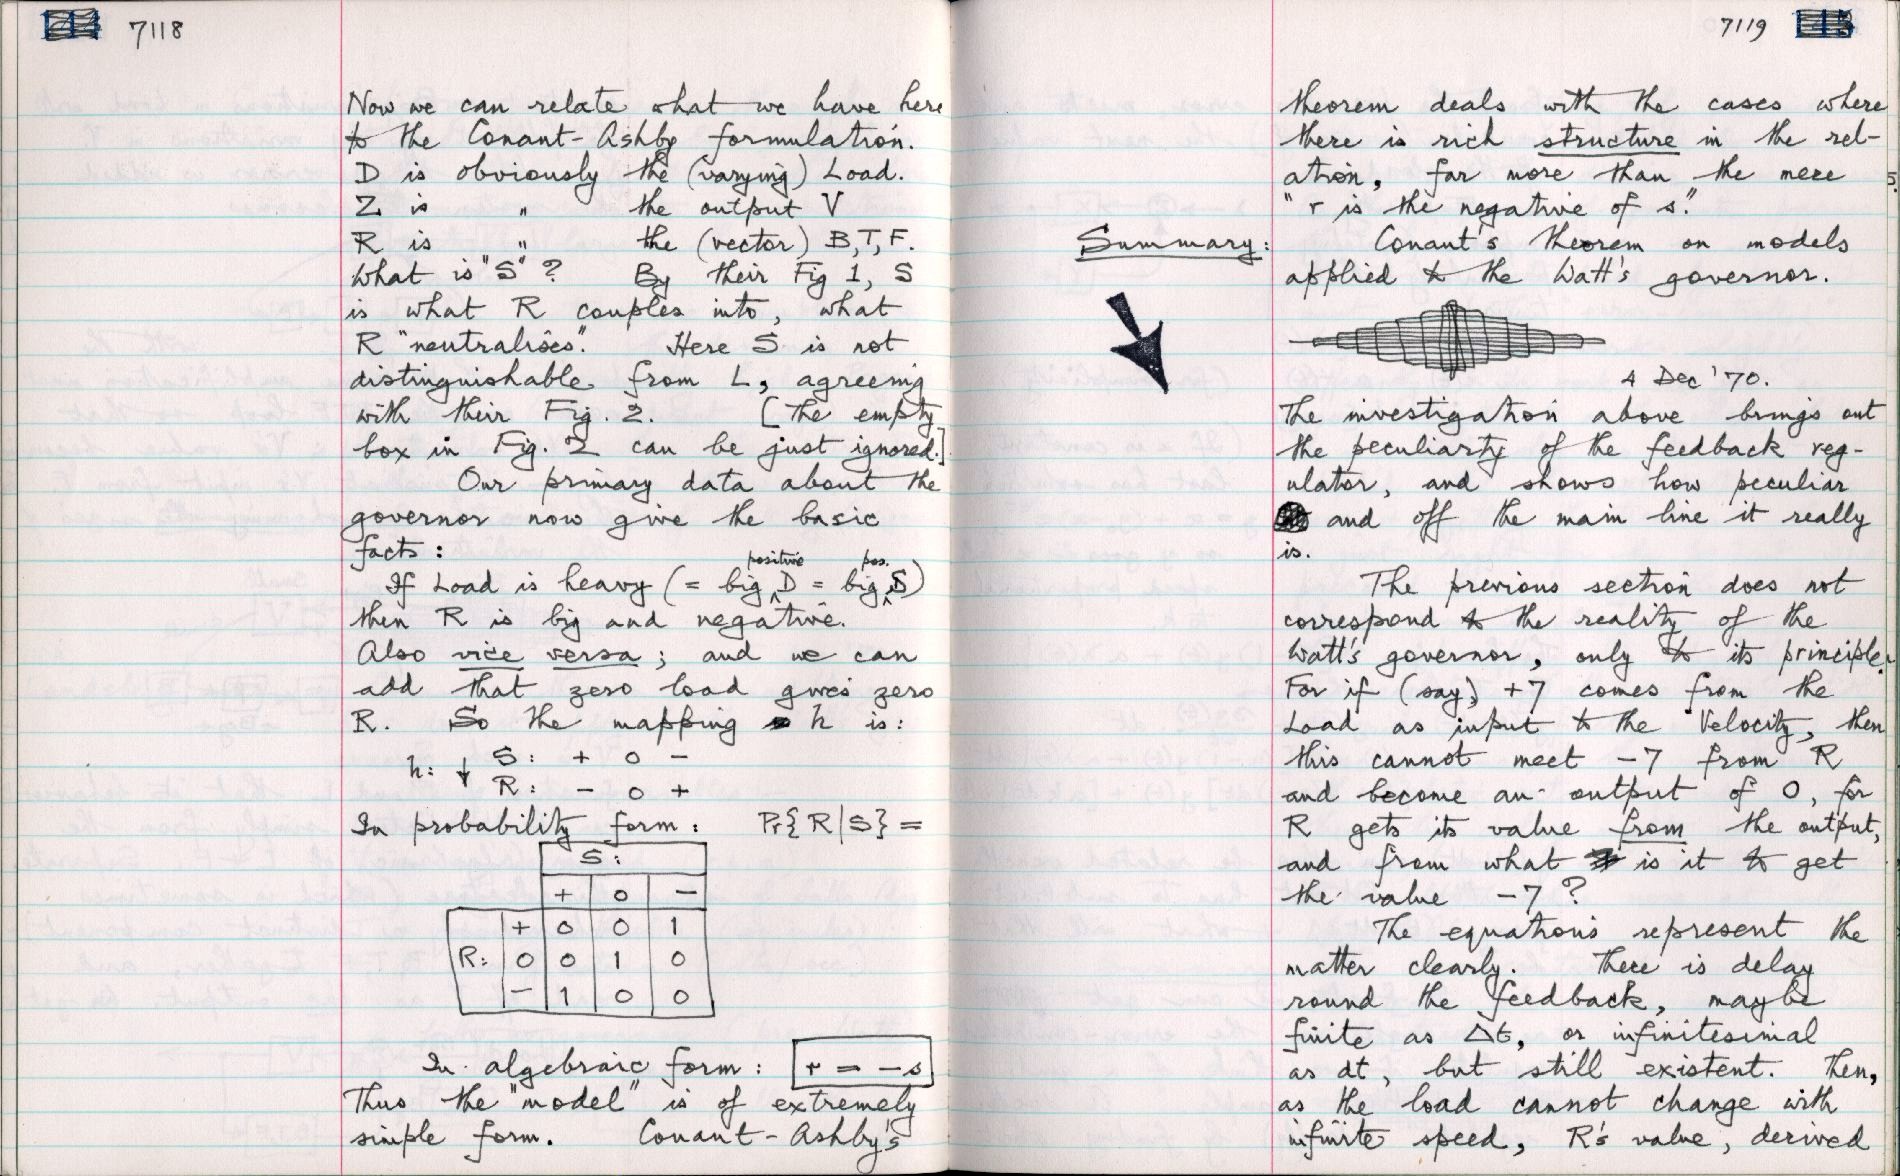 7118
Now we can relate what we have here
to the Conant-Ashby formulation.
D is obviously the (varying) Load.
Z is " the output V
R is " the (vector) B,T,F.
What is "S"? By their Fig 1, S
is what R couples into, what
R "neutralises". Here S is not
distinguishable from L, agreeing
with their Fig. 2. [The empty
box in Fig. 2 can be just ignored.]
Our primary data about the
governor now give the basic
facts:
positive pos.
If Load is heavy (= big D = big S)
then R is big and negative.
Also vice versa; and we can
add that zero load gives zero
R. So the mapping h is:
h: ↓ S: + 0 -
R: - 0 +
In probability form: Pr{R|S} =
S:
+ 0 -
+ 0 0 1
R: 0 0 1 0
- 1 0 0
In algebraic form: r = -s
Thus the "model" is of extremely
simple form. Conant-Ashby's
7119
theorem deals with the cases where
there is rich structure in the rel-
ation, far more than the mere
"r is the negative of s".
Summary: Conant's theorem on models
applied to the Watt's governor.
4 Dec '70.
The investigation above brings out
the peculiarity of the feedback reg-
ulator, and shows how peculiar
and off the main line it really
is.
The previous section does not
correspond to the reality of the
Watt's governor, only to its principle.
For if (say) +7 comes from the
Load as input to the Velocity, then
this cannot meet -7 from R
and become an output of 0, for
R gets its value from the output,
and from what is it to get
the value -7?
The equations represent the
matter clearly. There is delay
round the feedback, maybe
finite as Δt, or infinitesimal
as dt, but still existent. Then,
as the load cannot change with
infinite speed, R's value, derived